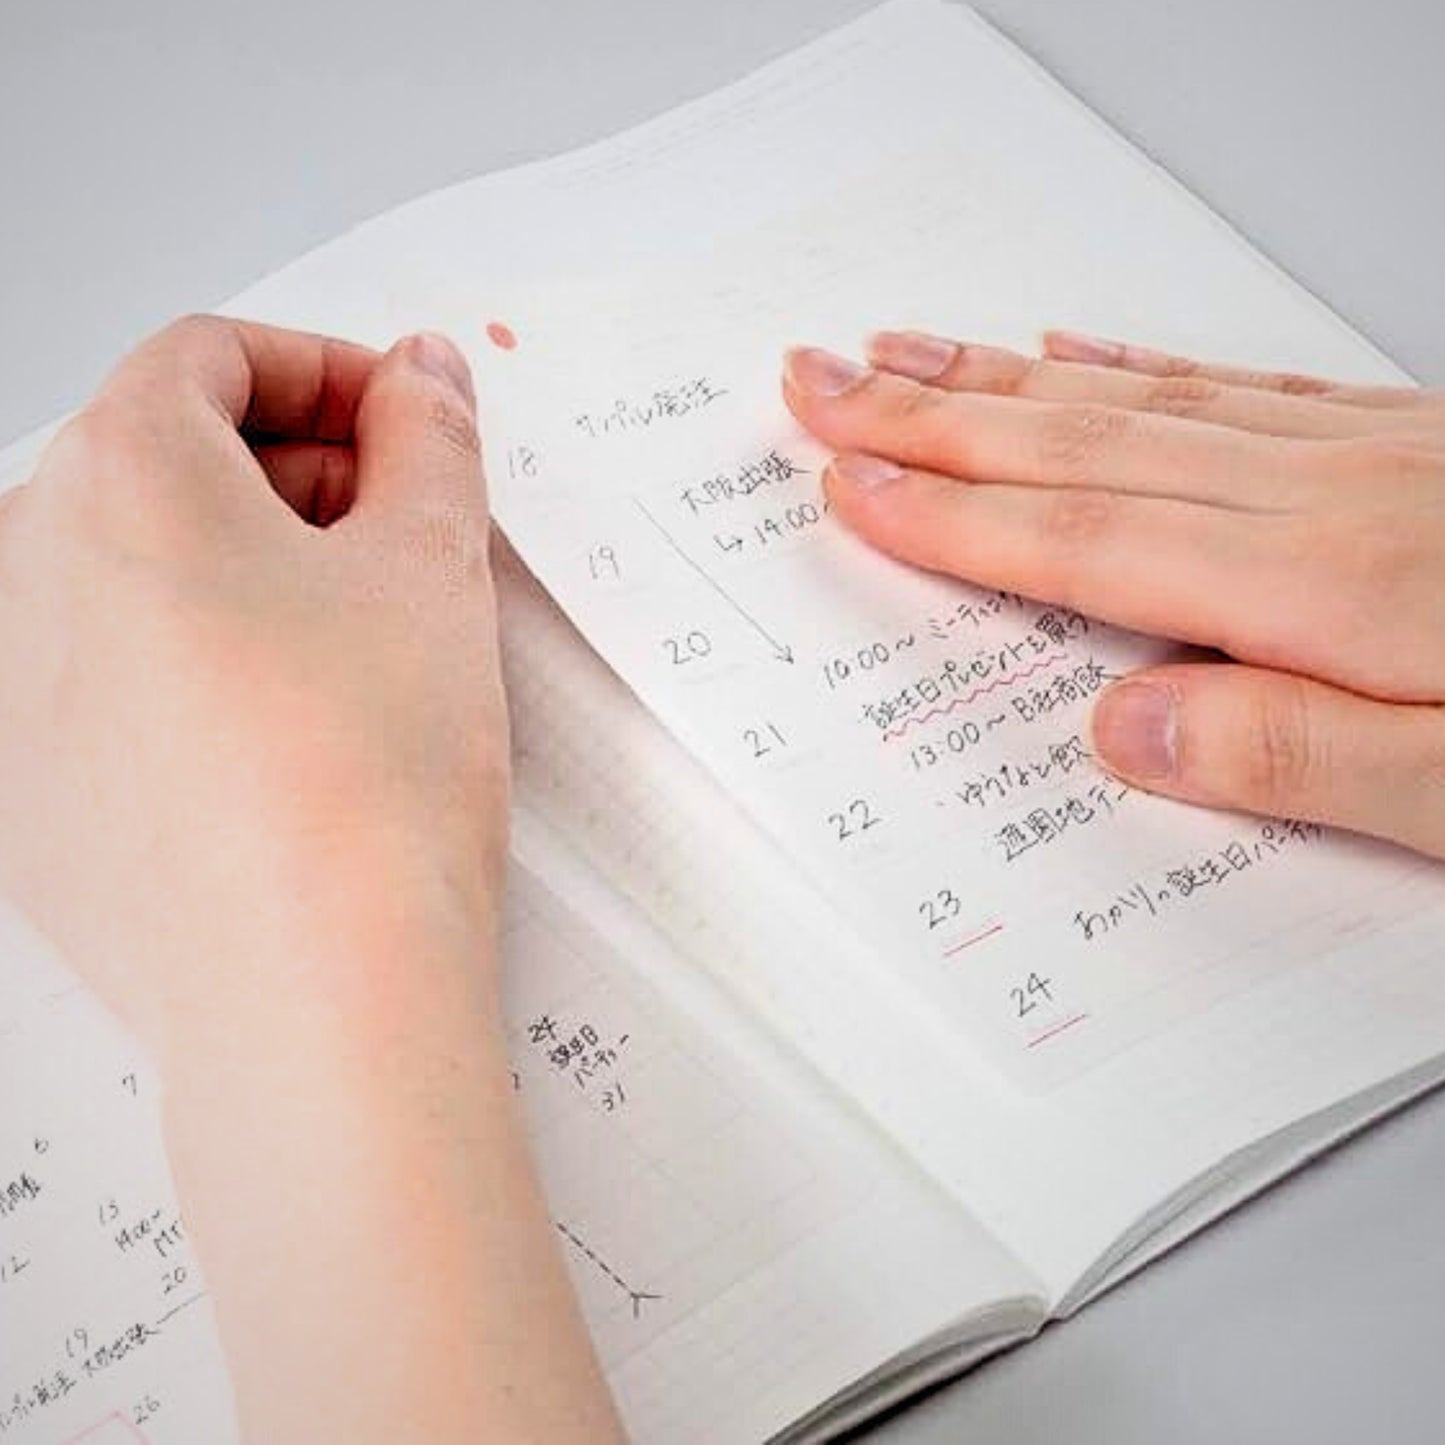 18
サンプル発注
19
大阪出張
↳ 14:00~
20
21
10:00~ ミーティング
誕生日プレゼントを買う
13:00~ B社商談
22
・ゆうかと飲
23
週間地デー
24
あかりの誕生日パーティ
24
誕生日
パーティー
31
7
6
15
14:00~
MT
12
20
19
大阪出張
サンプル発注
26